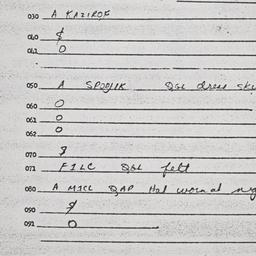 030 A KAZIROF
040 $
041 O
050 A SPODIK Dol dress
060 O
061 O
062 O
070 $
071 FILC Dol felt
080 A MICL DAP Hol worn at
090 $
091 O